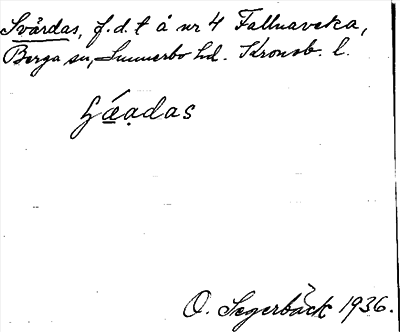 Svårdas, f. d. t å nr 4 Fallnaveka,
Berga sn, Sunnerbo hd. Kronob. l.
O. Segerbäck 1936.